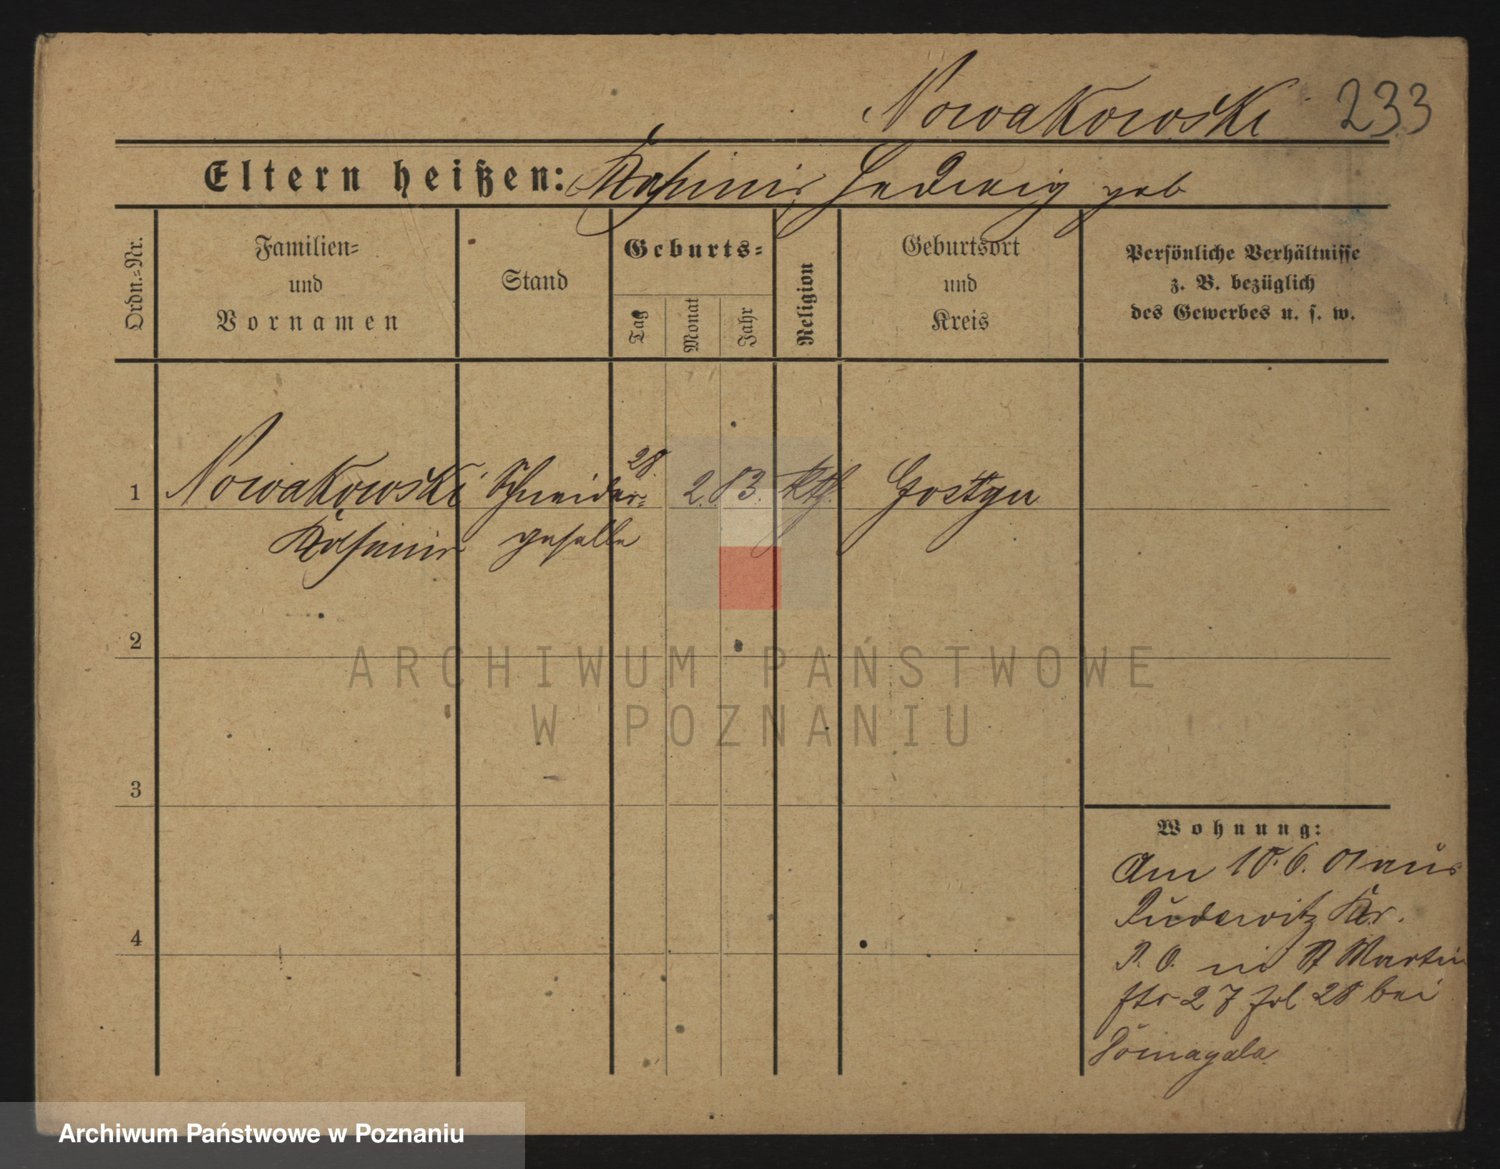 Nowakowski 233
Eltern heißen: Kasimir, Hedwig geb
Ordn.-Nr.
Familien-
und
Vornamen
Stand
Geburts-
Tag
Monat
Jahr
Religion
Geburtsort
und
Kreis
Persönliche Verhältnisse
z. B. bezüglich
des Gewerbes u. s. w.
1 Nowakowski Schneider- 28. 2. 83. kth. Gostyn
Kasimir geselle
2
ARCHIWUM PAŃSTWOWE
W POZNANIU
3
Wohnung:
Am 10.6. 01 aus
Pudewitz Kr.
P. O. in St Martin
str 27 bei
4
Archiwum Państwowe w Poznaniu